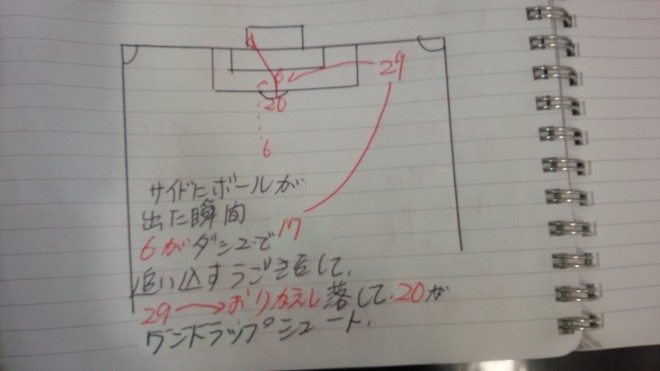 29
6
20
6
17
サイドにボールが
出た瞬間
6がダッシュで
追い込すうごきをして、
29→おりかえし落して、20が
ワントラップシュート.